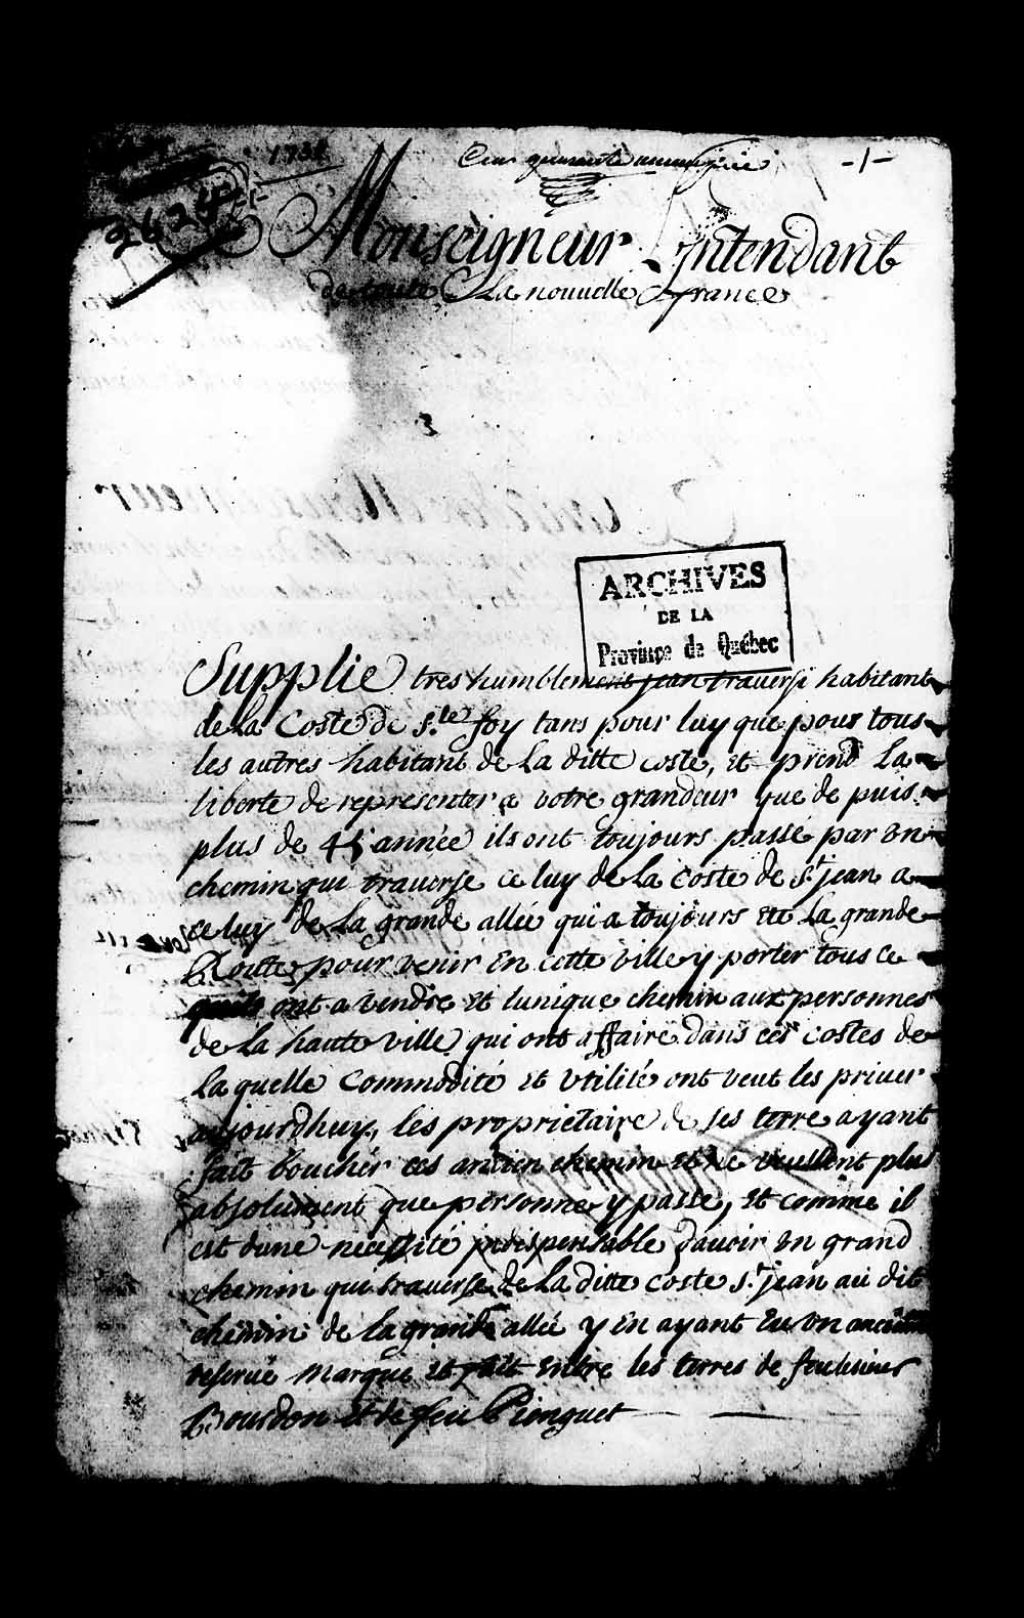 1731
Cent quarante neuvieme piece
-1-
2624
Monseigneur Lintendant
de toute La nouvelle france
ARCHIVES
DE LA
Province de Québec
Supplie tres humblement jean traversi habitant
de la Coste de s.te foy tans pour luy que pour tous
les autres habitant de la ditte coste, et prend la
liberte de representer a votre grandeur que de puis
plus de 45 année ils ont toujours passé par un
chemin qui traverse ce luy de la coste de s.t jean a
ce luy de la grande allée qui a toujours ete la grande
Route pour venir en cette ville y porter tous ce
quils ont a vendre et lunique chemin aux personnes
de la haute ville qui ont affaire dans ces costes de
la quelle Commodité et utilité ont veut les priver
aujourdhuy, les proprietaire de ses terre ayant
fait boucher ces ancien chemin et ne veullent plus
absolument que personne y passe, et comme il
est dune necessité indispensable davoir un grand
chemin qui traverse de la ditte coste s.t jean au dit
chemin de la grande allée y en ayant eu un ancien
reservé marqué et fait entre les terres de feu
Bourdon et de feu Pionguet